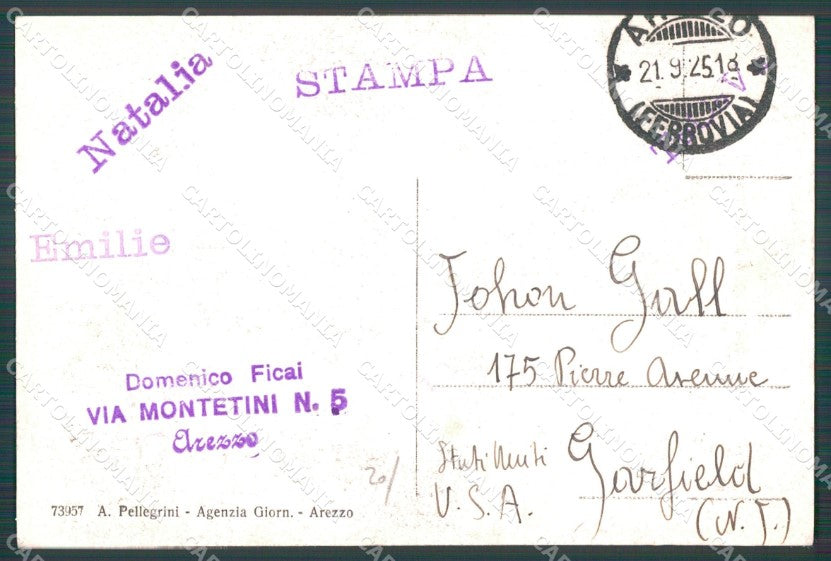 Natalia
STAMPA
21.9.25.18
(FERROVIA)
Emilie
Domenico Ficai
VIA MONTETINI N. 5
Arezzo
Johon Gall
175 Pierre Avenue
Stati Uniti
Garfield
U.S.A.
(N. J.)
20/
73957 A. Pellegrini - Agenzia Giorn. - Arezzo
CARTOLINOMANIA